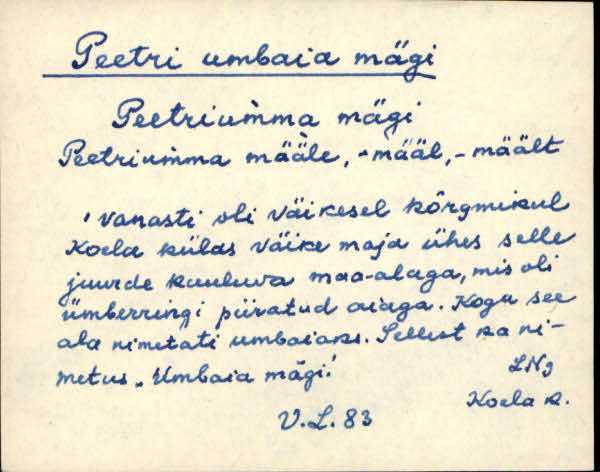 Peetri umbaia mägi
Peetrium̀ma mägi
Peetrium̀ma mä̀äle, -määl, -mäält
' vanasti oli väikesel kõrgmikul
Koela külas väike maja ühes selle
juurde kuuluva maa-alaga, mis oli
ümberringi piiratud aiaga. Kogu see
ala nimetati umbaiaks. Sellest ka ni-
metus „Umbaia mägi.'
LNg
Koela k.
V.L. 83